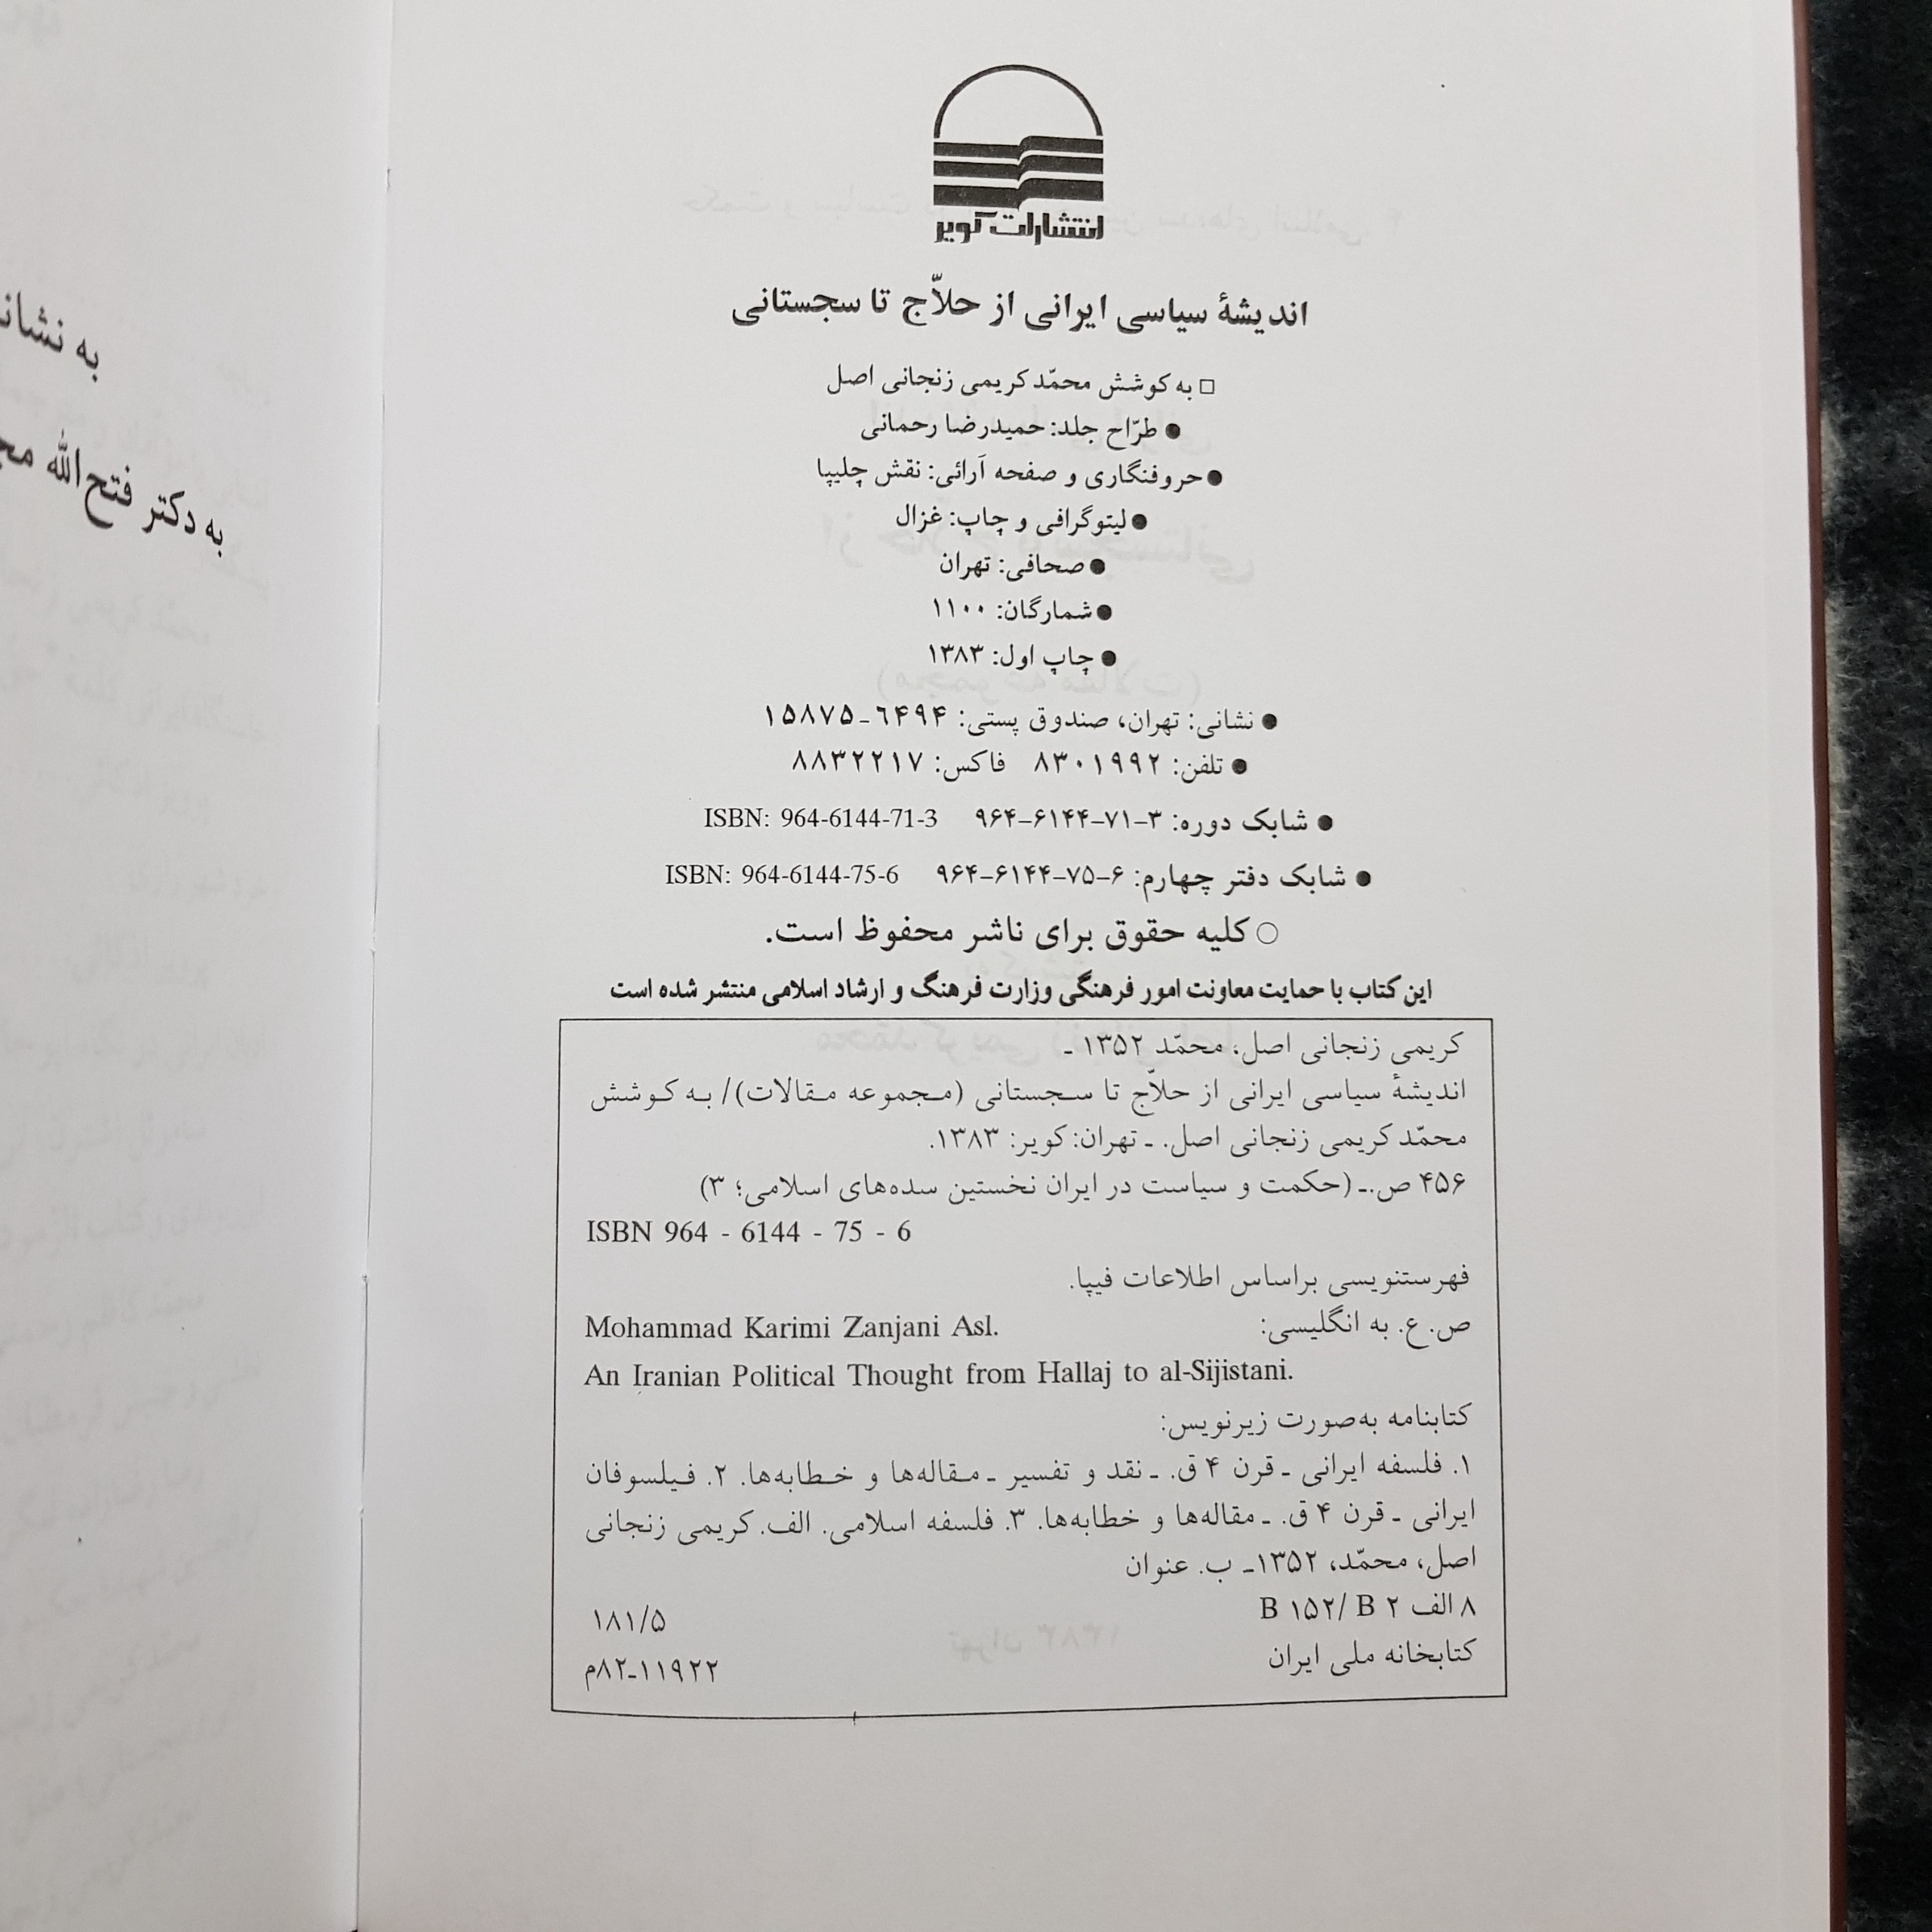 انتشارات کویر
اندیشهٔ سیاسی ایرانی از حلاّج تا سجستانی
□ به کوشش محمّد کریمی زنجانی اصل
● طرّاح جلد: حمیدرضا رحمانی
● حروفنگاری و صفحه آرائی: نقش چلیپا
● لیتوگرافی و چاپ: غزال
● صحافی: تهران
● شمارگان: ۱۱۰۰
● چاپ اول: ۱۳۸۳
● نشانی: تهران، صندوق پستی: ۶۴۹۴-۱۵۸۷۵
● تلفن: ۸۳۰۱۹۹۲ فاکس: ۸۸۳۲۲۱۷
● شابک دوره: ۳-۷۱-۶۱۴۴-۹۶۴ ISBN: 964-6144-71-3
● شابک دفتر چهارم: ۶-۷۵-۶۱۴۴-۹۶۴ ISBN: 964-6144-75-6
○ کلیه حقوق برای ناشر محفوظ است.
این کتاب با حمایت معاونت امور فرهنگی وزارت فرهنگ و ارشاد اسلامی منتشر شده است
کریمی زنجانی اصل، محمّد ۱۳۵۲ -
اندیشهٔ سیاسی ایرانی از حلاّج تا سجستانی (مجموعه مقالات)/ به کوشش
محمّد کریمی زنجانی اصل. - تهران: کویر: ۱۳۸۳.
۴۵۶ ص.- (حکمت و سیاست در ایران نخستین سده‌های اسلامی؛ ۳)
ISBN 964 - 6144 - 75 - 6
فهرستنویسی براساس اطلاعات فیپا.
ص. ع. به انگلیسی: Mohammad Karimi Zanjani Asl.
An Iranian Political Thought from Hallaj to al-Sijistani.
کتابنامه به‌صورت زیرنویس:
۱. فلسفه ایرانی - قرن ۴ ق. - نقد و تفسیر - مقاله‌ها و خطابه‌ها. ۲. فیلسوفان
ایرانی - قرن ۴ ق. - مقاله‌ها و خطابه‌ها. ۳. فلسفه اسلامی. الف. کریمی زنجانی
اصل، محمّد، ۱۳۵۲- ب. عنوان
۸ الف ۲ B ۱۵۲/ B ۱۸۱/۵
کتابخانه ملی ایران ۱۱۹۲۲-۸۲م
به
به دکتر فتح‌الله